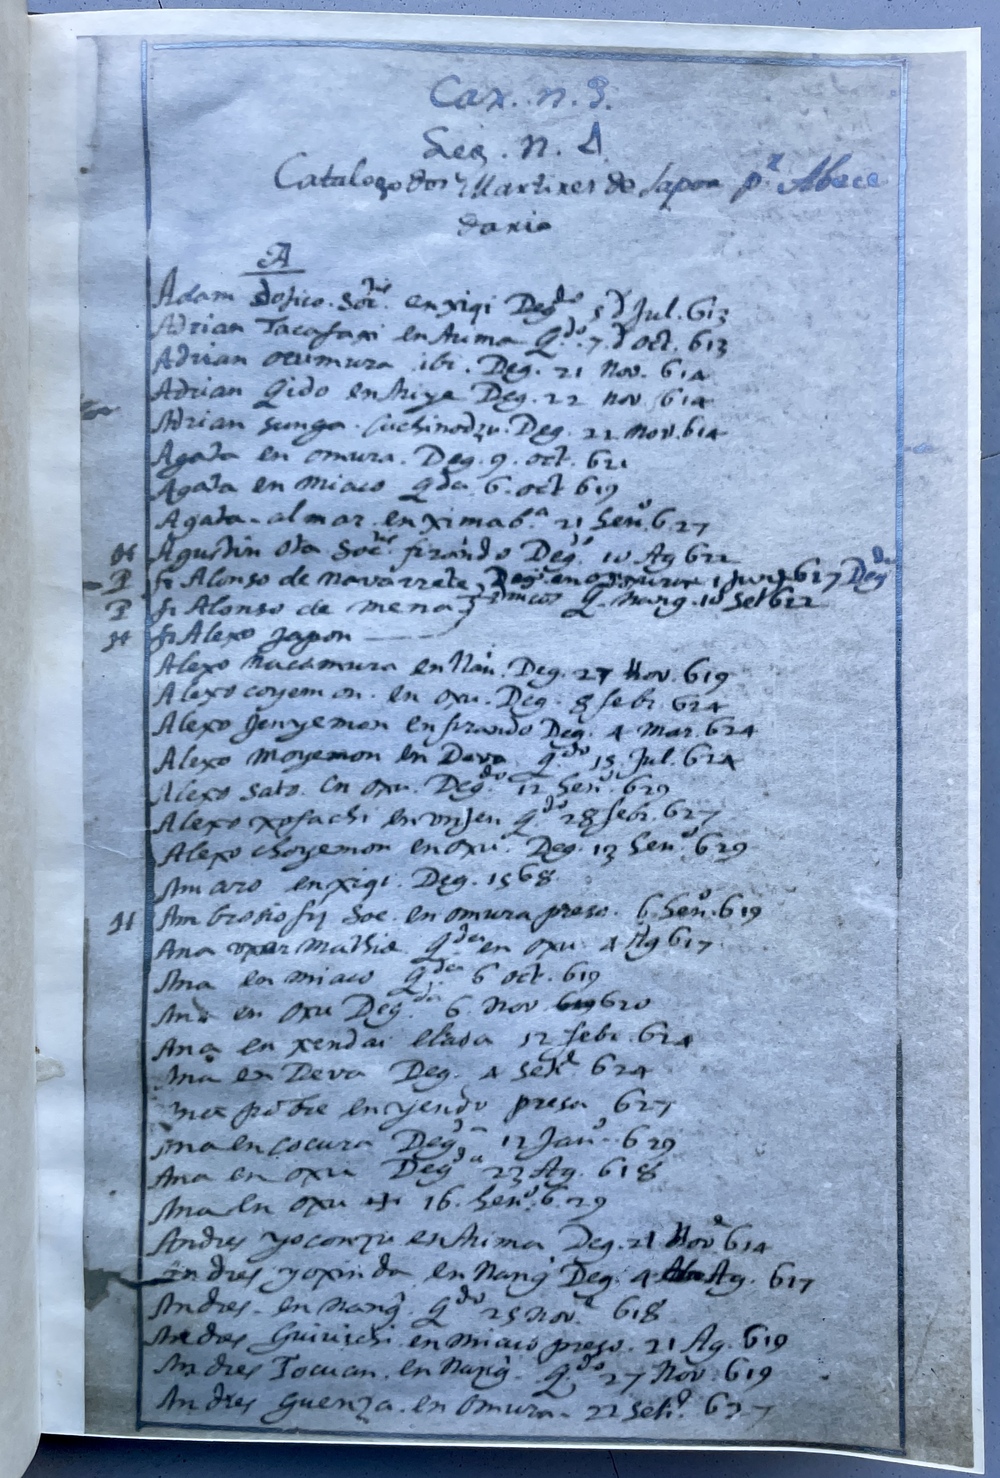 Cax. n. 3.
Leg. n. 4
Catalogo dos Martires de Japon pr Abece
dario
A
Adam Socius en xiqi Degdo 5 d Jul. 613
Adrian Tacafaxi en Arima Qdo. 7. d oct. 613
Adrian ocumura ibi. Deg. 21 Nov. 614
Adrian Qido en Deg. 22 nov 614
Adrian sunga. Cuchinodzu. Deg. 22 Nov. 614
Agata en omura. Deg. 9. oct. 621
Agata en miaco qda 6. oct 619
Agata al mar en ximaba 21 Sen. 6.27
Agustin ota Soc. firando Degdo 10 Ag 622
P fr Alonso de navarrete Deg. en omura 1 Jun. 617 Degdo
P fr Alonso de mena Q. nang. 10 Set 622
fr Alexo Japon
Alexo nacamura en Deg. 27 Nov 619
Alexo coyemon. en oxu. Deg. 8 febr. 624
Alexo Jenyemon en firando Deg. 4 Mar. 624
Alexo moyemon en Deva qdo 15 Jul. 624
Alexo sato. en oxu. Degdo 12 Jeno 629
Alexo xofachi en vnjen qdo 28 febr. 627
Alexo choyemon en oxu. Deg. 13 Jeno 629
Amaro en xiqi. Deg. 1568.
Ambrosio frz Soc. en omura preso. 6 Jeno. 619
Ana uxer Mathie qda en oxu 4 Ag 617
Ana en miaco qda 6 oct. 619
Ana en oxu Degda 6. Nov 620
Ana en xendai elada 12 febr. 624
Ana en Deva Deg. 4 Set 624
Ana pobre en yendo presa 627
Ana en Cocura Degda 12 Jano. 629
Ana en oxu Degda 23 Ag. 618
Ana en oxu 16. Jeno. 6.29
Andres yoconzu en Arima Deg. 21 Nov 614
Andres yoxinda en Nang Deg. 4 Ag. 617
Andres. en nang. qdo 25 nov. 618
Andres Guirichi en miaco preso. 21 Ag. 619
Andres Tocuan. en Nang. qdo 27 Nov 619
Andres Guenza. en Omura. 22 Set. 627